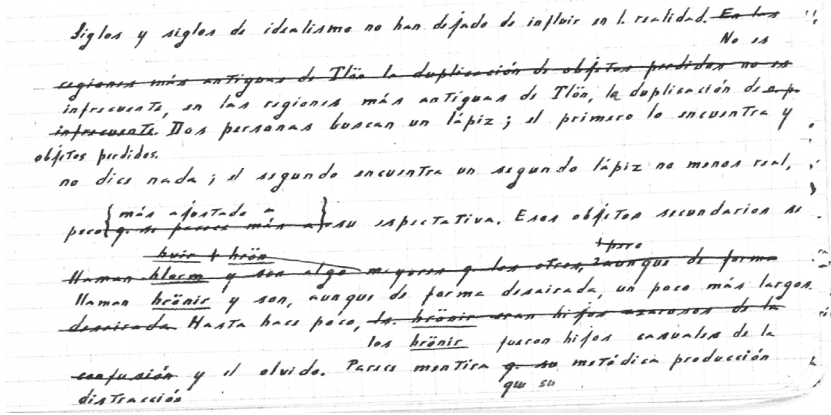 Siglos y siglos de idealismo no han dejado de influir en l. realidad. En las
No es
regiones más antiguas de Tlön la duplicación de objetos perdidos no es
infrecuente, en las regiones más antiguas de Tlön, la duplicación de
infrecuente. Dos personas buscan un lápiz; el primero lo encuentra y
objetos perdidos.
no dice nada; el segundo encuentra un segundo lápiz no menos real,
más ajustado a
pero q. se parece más a su espectativa. Esos objetos secundarios se
hrön
pero
llaman y son algo mayores q. los otros, aunque de forma
llaman hrönir y son, aunque de forma desairada, un poco más largos.
desairada. Hasta hace poco, ls. hrönir eran hijos azarosos de la
los hrönir fueron hijos casuales de la
confusión y el olvido. Parece mentira q. su metódica producción
distracción que su